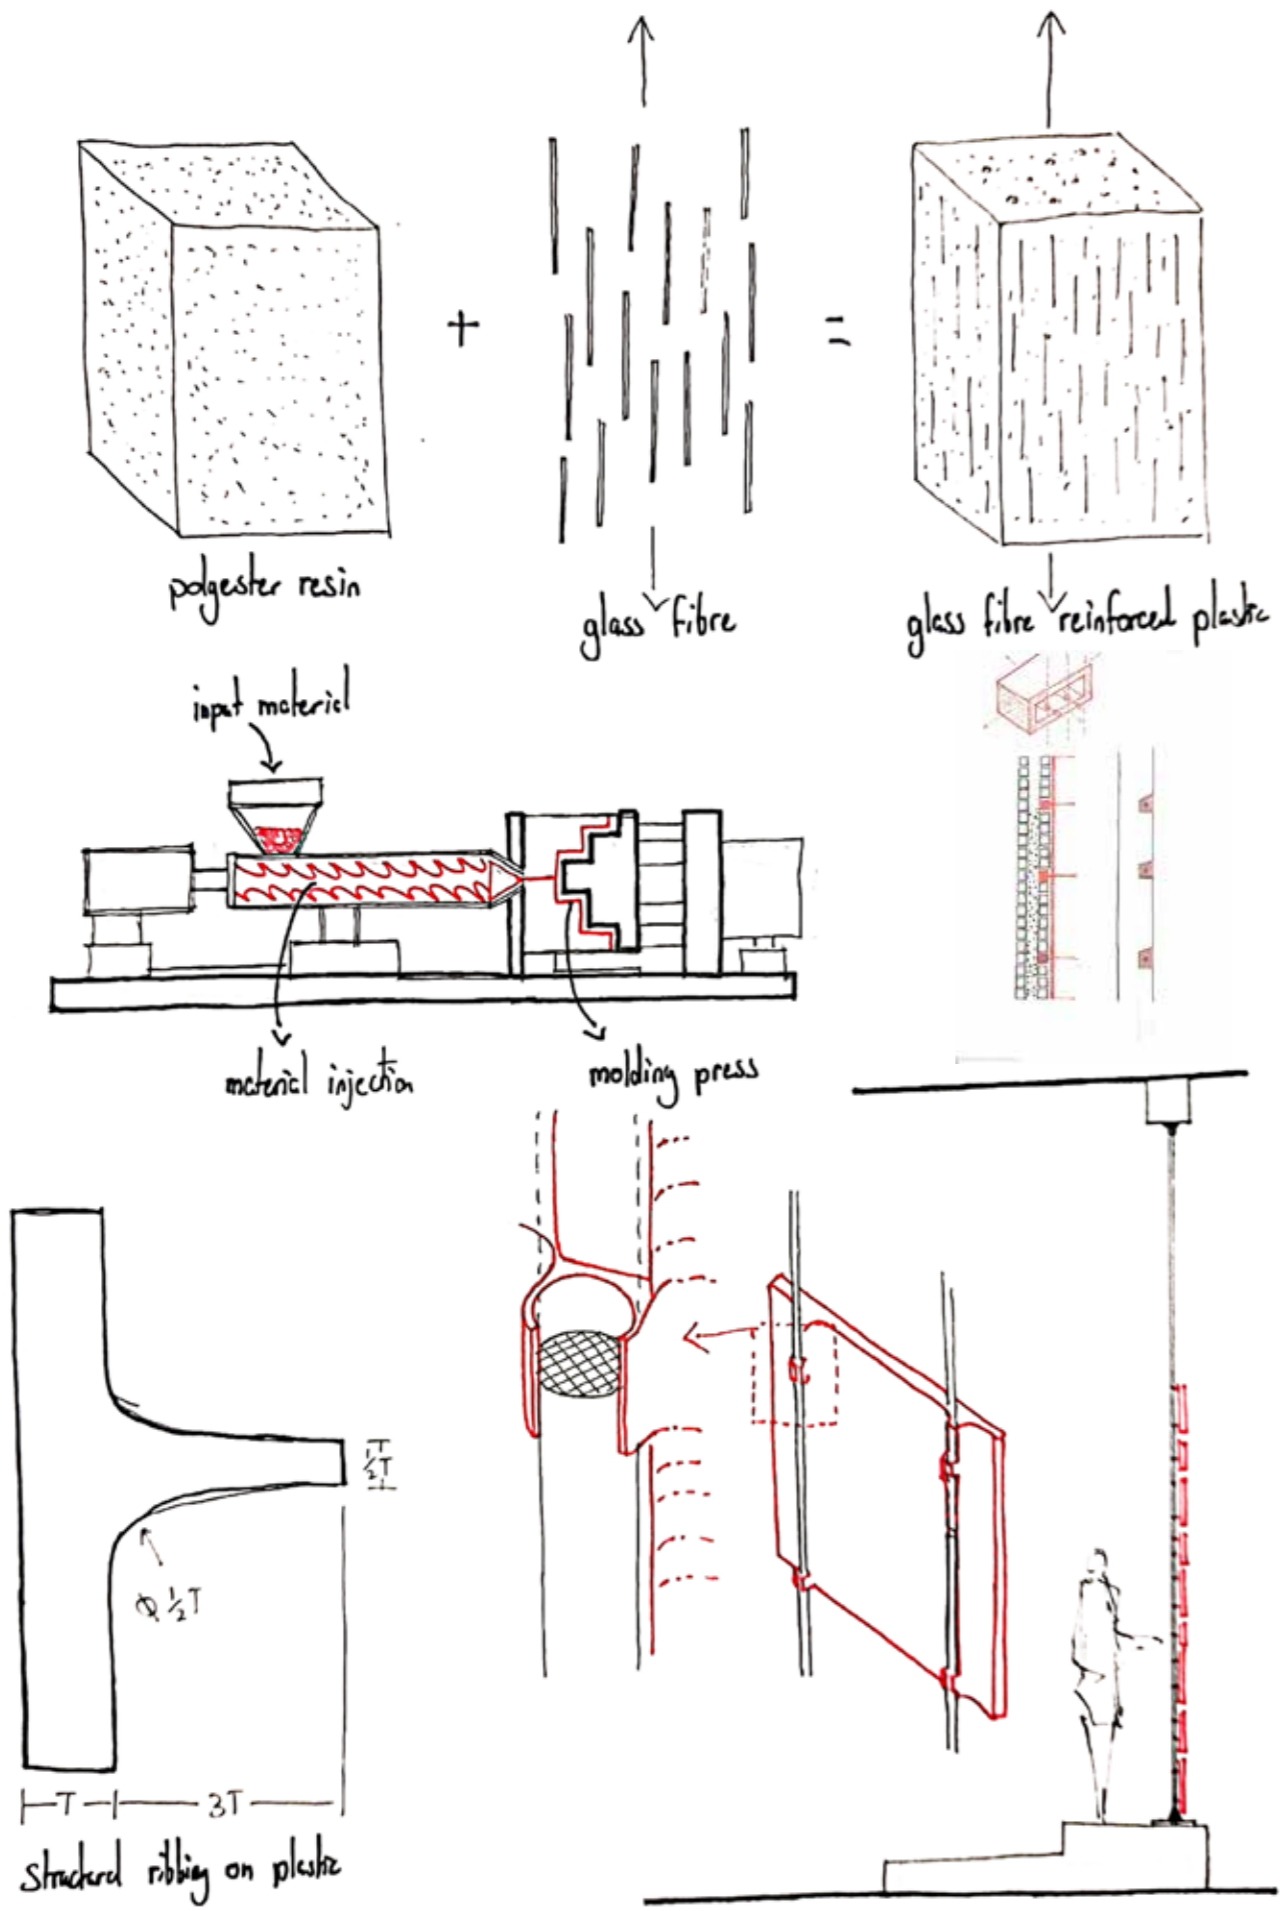 +
=
polyester resin
glass fibre
glass fibre reinforced plastic
input material
material injection
molding press
½T
Ø ½T
T
3T
structural ribbing on plastic